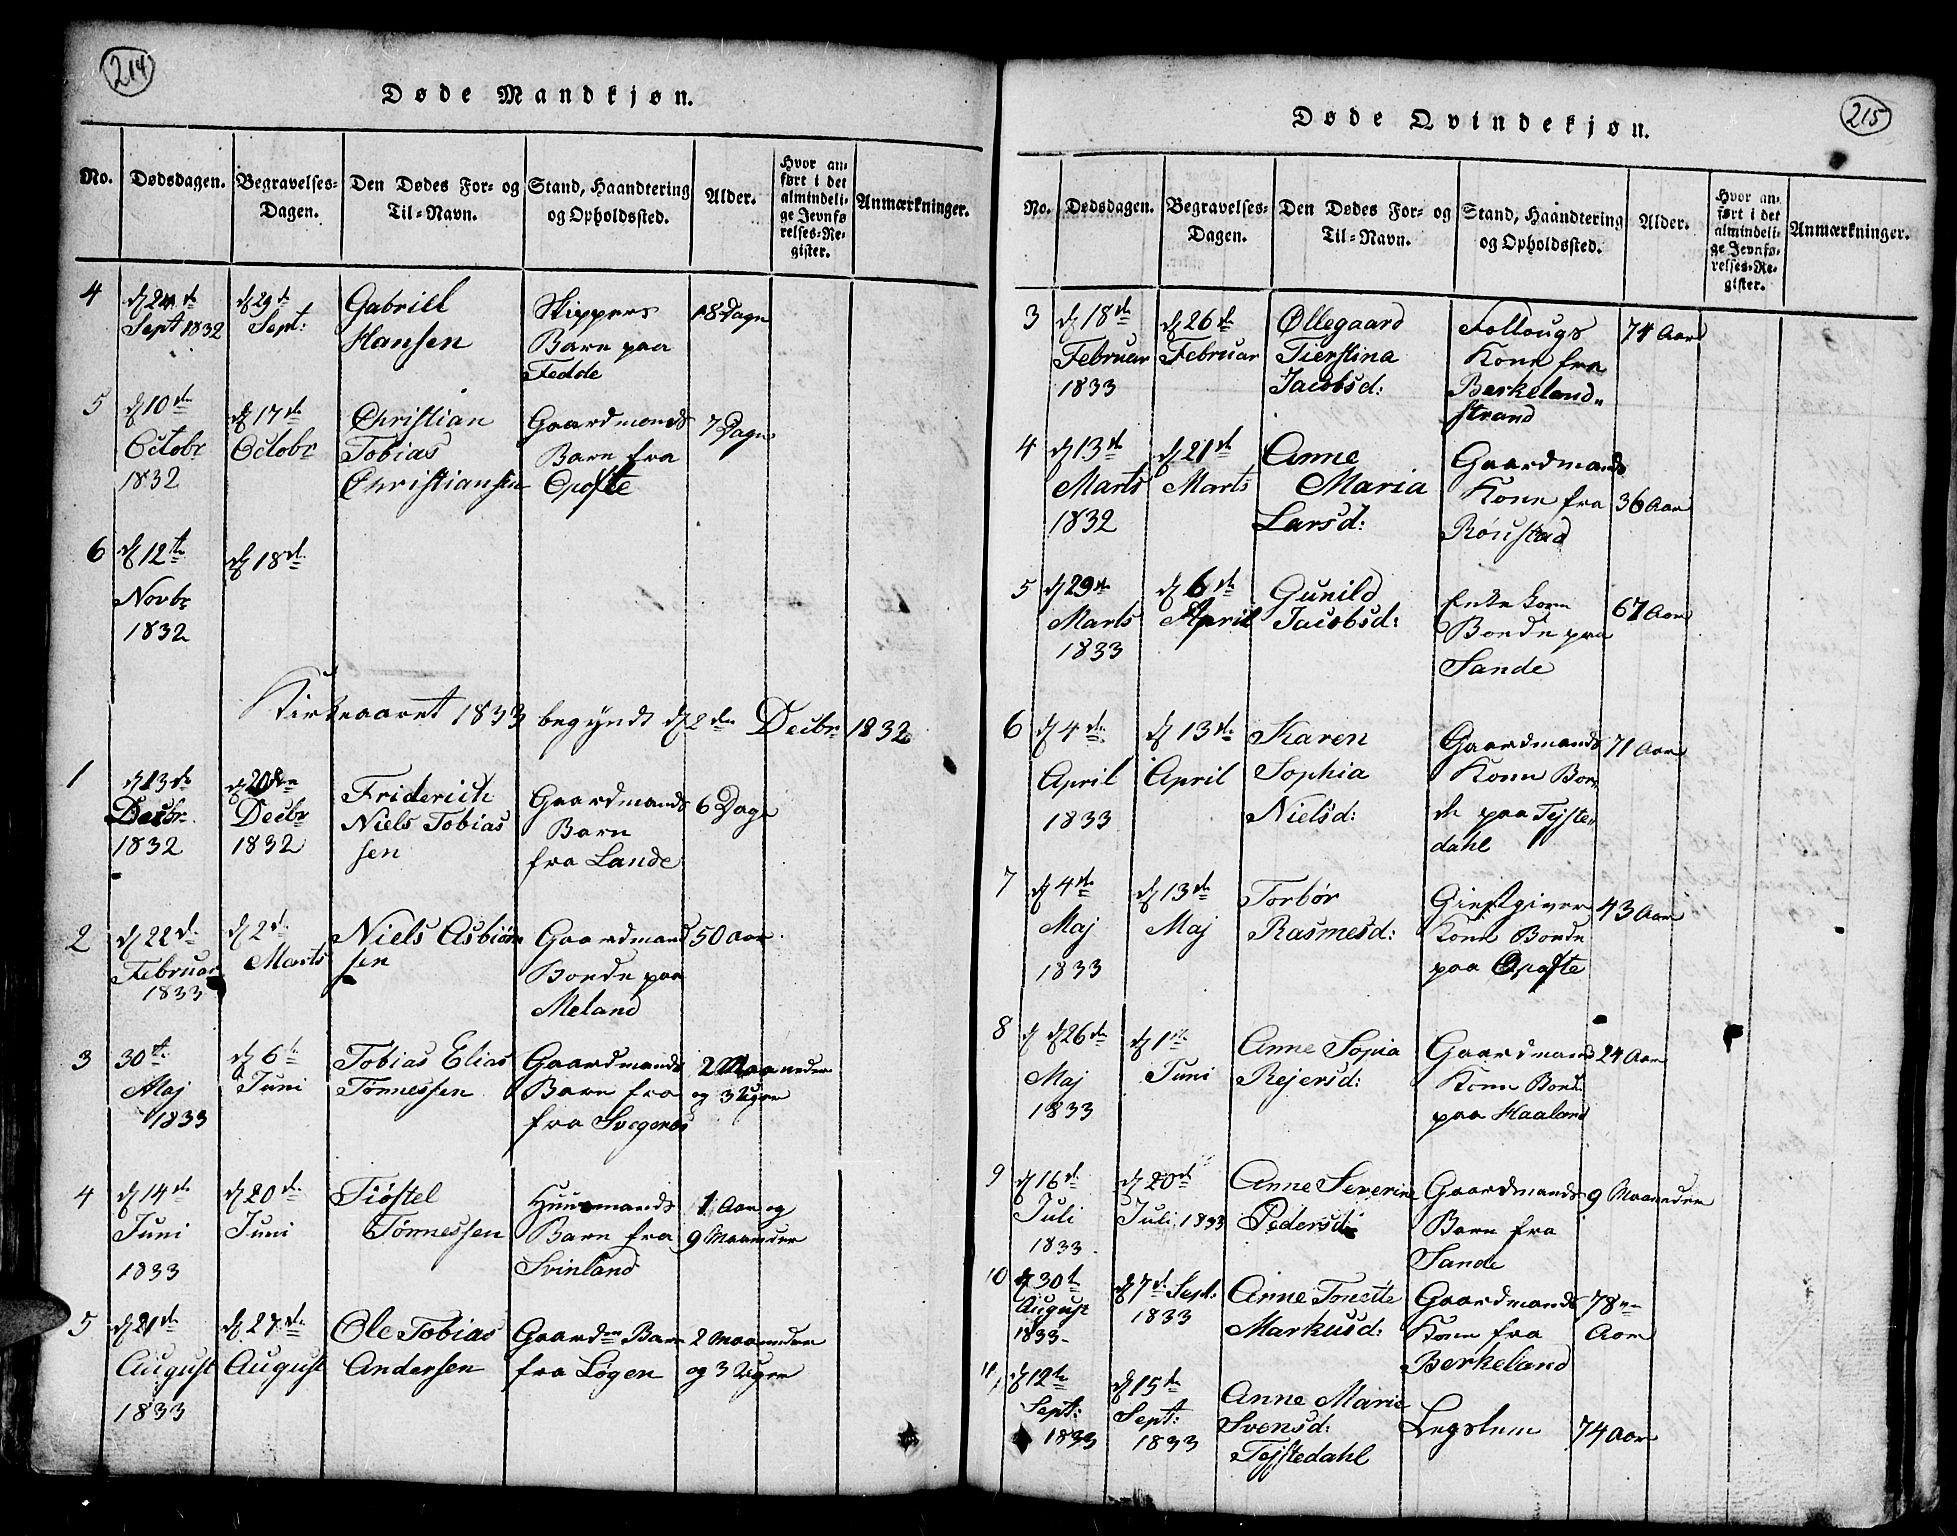 214
Døde Mandkjøn.
No. Dødsdagen. Begravelses-Dagen. Den Dødes For- og Til-Navn. Stand, Haandtering og Opholdssted. Alder. Hvor anført i det almindelige Jevnførelses-Register. Anmærkninger.
4
d 24de
Sept 1832
d 29de
Sept:
Gabriell
Hansen
Skippers
Barn paa
Fedde
18 Dage
5
d 10de
Octobr
1832
d 17de
Octobr
Christian
Tobias
Christiansen
Gaardmands
Barn fra
Opofte
7 Dage
6
d 12te
Novbr
1832
d 18de
Kirkeaaret 1833 begyndt d 2den Decbr 1832
1
d 13de
Decbr
1832
d 20den
Decbr
1832
Friderich
Niels Tobias
sen
Gaardmands
Barn
fra Lande
6 Dage
2
d 22de
Februar
1833
d 2de
Marts
Niels Asbiørn
sen
Gaardmand
Boende paa
Meland
50 Aar
3
30te
Maj
1833
d 6te
Juni
Tobias Elias
Tønnessen
Gaardmands
Barn fra
fra Svegenes
2 Maaneder
og 3 Uger
4
d 14de
Juni
1833
d 20de
Juni
Tiøstel
Tønnessen
Huusmands
Barn fra
Svinland
1 Aar og
9 Maaneder
5
d 21de
August
1833
d 27de
August
Ole Tobias
Andersen
Gaardm Barn
fra Løgen
2 Maaneder
og 3 Uger
215
Døde Qvindekjøn.
No. Dødsdagen. Begravelses-Dagen. Den Dødes For- og Til-Navn. Stand, Haandtering og Opholdssted. Alder. Hvor anført i det almindelige Jevnførelses-Register. Anmærkninger.
3
d 18de
Februar
1833
d 26de
Februar
Øllegaard
Tierstina
Jacobsd:
Follougs
Kone fra
Berkeland
strand
74 Aar
4
d 13de
Marts
1832
d 21de
Marts
Anne
Maria
Larsd:
Gaardmands
Kone fra
Røiustad
36 Aar
5
d 29de
Marts
1833
d 6te
April
Gunild
Jacobsd:
Enkekone
Boende paa
Sande
67 Aar
6
d 4de
April
1833
d 13de
April
Karen
Sophia
Nielsd:
Gaardmands
Kone Boen
de paa Tejste
dahl
71 Aar
7
d 4de
Maj
1833
d 13de
Maj
Torbør
Rasmesd:
Giestgiver
Kone Boende
paa Opofte
43 Aar
8
d d 26de
Maj
1833
d 1ste
Juni
Anne Sopia
Rejersd:
Gaardmand
Kone Boend
paa Haaland
24 Aar
9
d 16de
Juli
1833
d 20de
Juli 1833
Anne Severine
Pedersd:
Gaardmands
Barn fra
Sande
9 Maaneder
10
d 30te
August
1833
d 7de Sept:
1833
Anne Tonette
Markusd:
Gaardmands
Kone fra
Berkeland
78
Aar
11
d 12te
Sept:
1833
d 15de
Sept:
1833
Anne Marie
Svensd:
Tejstedahl
Legslem
74 Aar